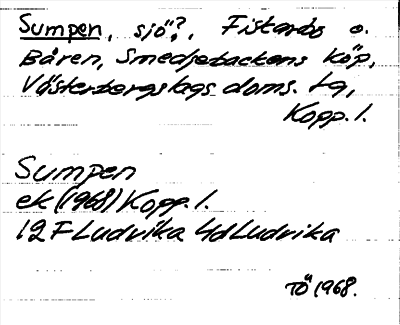 Sumpen, sjö?, Fiskarbo o.
Båren, Smedjebackens köp,
Västerbergslags doms. tg,
Kopp. l.
Sumpen
ek (1968) Kopp. l.
12 F Ludvika 4d Ludvika
TÖ 1968.